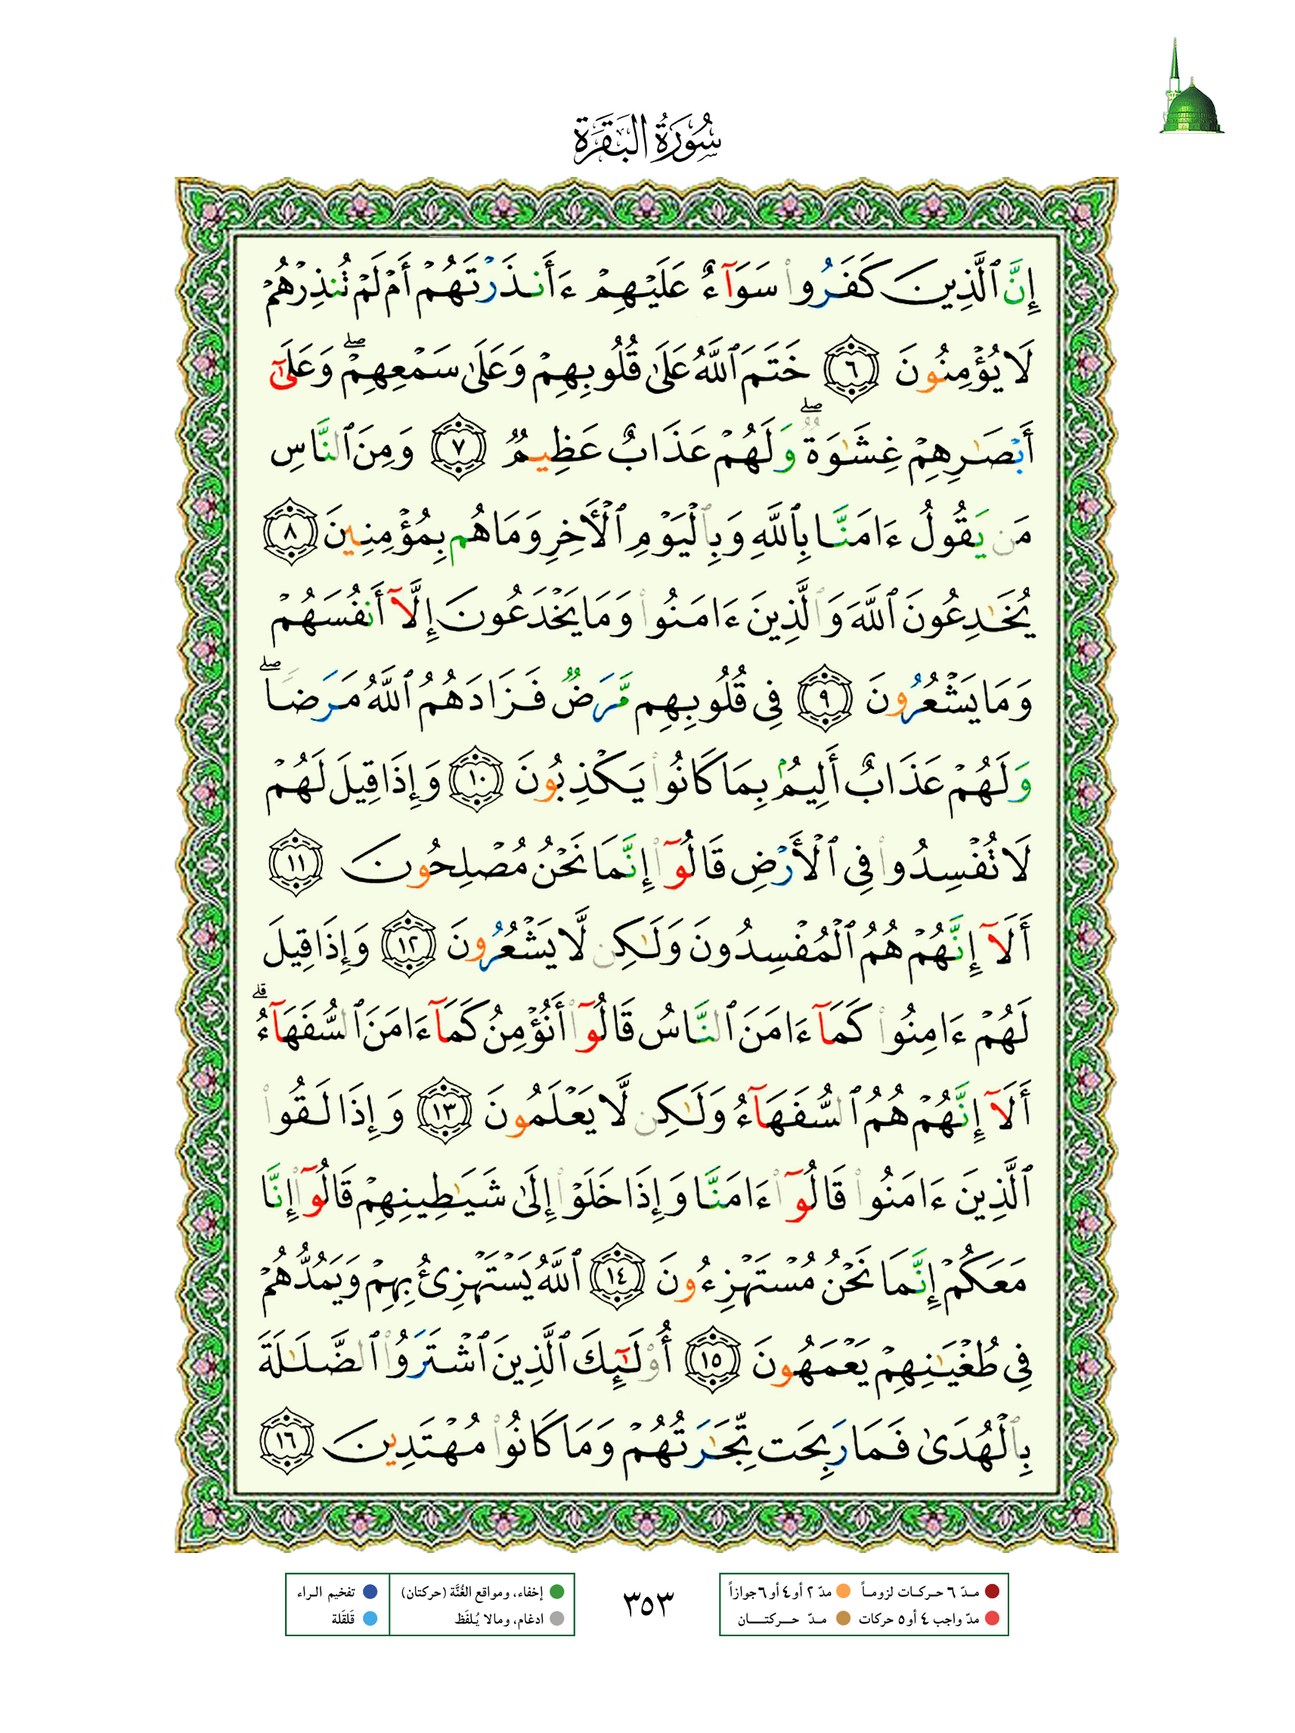 سُورَةُ البَقَرَة
إِنَّ ٱلَّذِينَ كَفَرُوا۟ سَوَآءٌ عَلَيْهِمْ ءَأَنذَرْتَهُمْ أَمْ لَمْ تُنذِرْهُمْ
لَا يُؤْمِنُونَ ٦ خَتَمَ ٱللَّهُ عَلَىٰ قُلُوبِهِمْ وَعَلَىٰ سَمْعِهِمْ ۖ وَعَلَىٰٓ
أَبْصَـٰرِهِمْ غِشَـٰوَةٌ ۖ وَلَهُمْ عَذَابٌ عَظِيمٌ ٧ وَمِنَ ٱلنَّاسِ
مَن يَقُولُ ءَامَنَّا بِٱللَّهِ وَبِٱلْيَوْمِ ٱلْأَخِرِ وَمَا هُم بِمُؤْمِنِينَ ٨
يُخَـٰدِعُونَ ٱللَّهَ وَٱلَّذِينَ ءَامَنُوا۟ وَمَا يَخْدَعُونَ إِلَّآ أَنفُسَهُمْ
وَمَا يَشْعُرُونَ ٩ فِى قُلُوبِهِم مَّرَضٌ فَزَادَهُمُ ٱللَّهُ مَرَضًا ۖ
وَلَهُمْ عَذَابٌ أَلِيمٌۢ بِمَا كَانُوا۟ يَكْذِبُونَ ١٠ وَإِذَا قِيلَ لَهُمْ
لَا تُفْسِدُوا۟ فِى ٱلْأَرْضِ قَالُوٓا۟ إِنَّمَا نَحْنُ مُصْلِحُونَ ١١
أَلَآ إِنَّهُمْ هُمُ ٱلْمُفْسِدُونَ وَلَـٰكِن لَّا يَشْعُرُونَ ١٢ وَإِذَا قِيلَ
لَهُمْ ءَامِنُوا۟ كَمَآ ءَامَنَ ٱلنَّاسُ قَالُوٓا۟ أَنُؤْمِنُ كَمَآ ءَامَنَ ٱلسُّفَهَآءُ ۗ
أَلَآ إِنَّهُمْ هُمُ ٱلسُّفَهَآءُ وَلَـٰكِن لَّا يَعْلَمُونَ ١٣ وَإِذَا لَقُوا۟
ٱلَّذِينَ ءَامَنُوا۟ قَالُوٓا۟ ءَامَنَّا وَإِذَا خَلَوْا۟ إِلَىٰ شَيَـٰطِينِهِمْ قَالُوٓا۟ إِنَّا
مَعَكُمْ إِنَّمَا نَحْنُ مُسْتَهْزِءُونَ ١٤ ٱللَّهُ يَسْتَهْزِئُ بِهِمْ وَيَمُدُّهُمْ
فِى طُغْيَـٰنِهِمْ يَعْمَهُونَ ١٥ أُو۟لَـٰٓئِكَ ٱلَّذِينَ ٱشْتَرَوُا۟ ٱلضَّلَـٰلَةَ
بِٱلْهُدَىٰ فَمَا رَبِحَت تِّجَـٰرَتُهُمْ وَمَا كَانُوا۟ مُهْتَدِينَ ١٦
مدّ ٦ حركات لزوماً مدّ ٢ أو ٤ أو ٦ جوازاً
مدّ واجب ٤ أو ٥ حركات مدّ حركتان
٣٥٣
إخفاء، ومواقع الغُنَّة (حركتان) تفخيم الراء
ادغام، ومالا يُلفَظ قَلقَلة